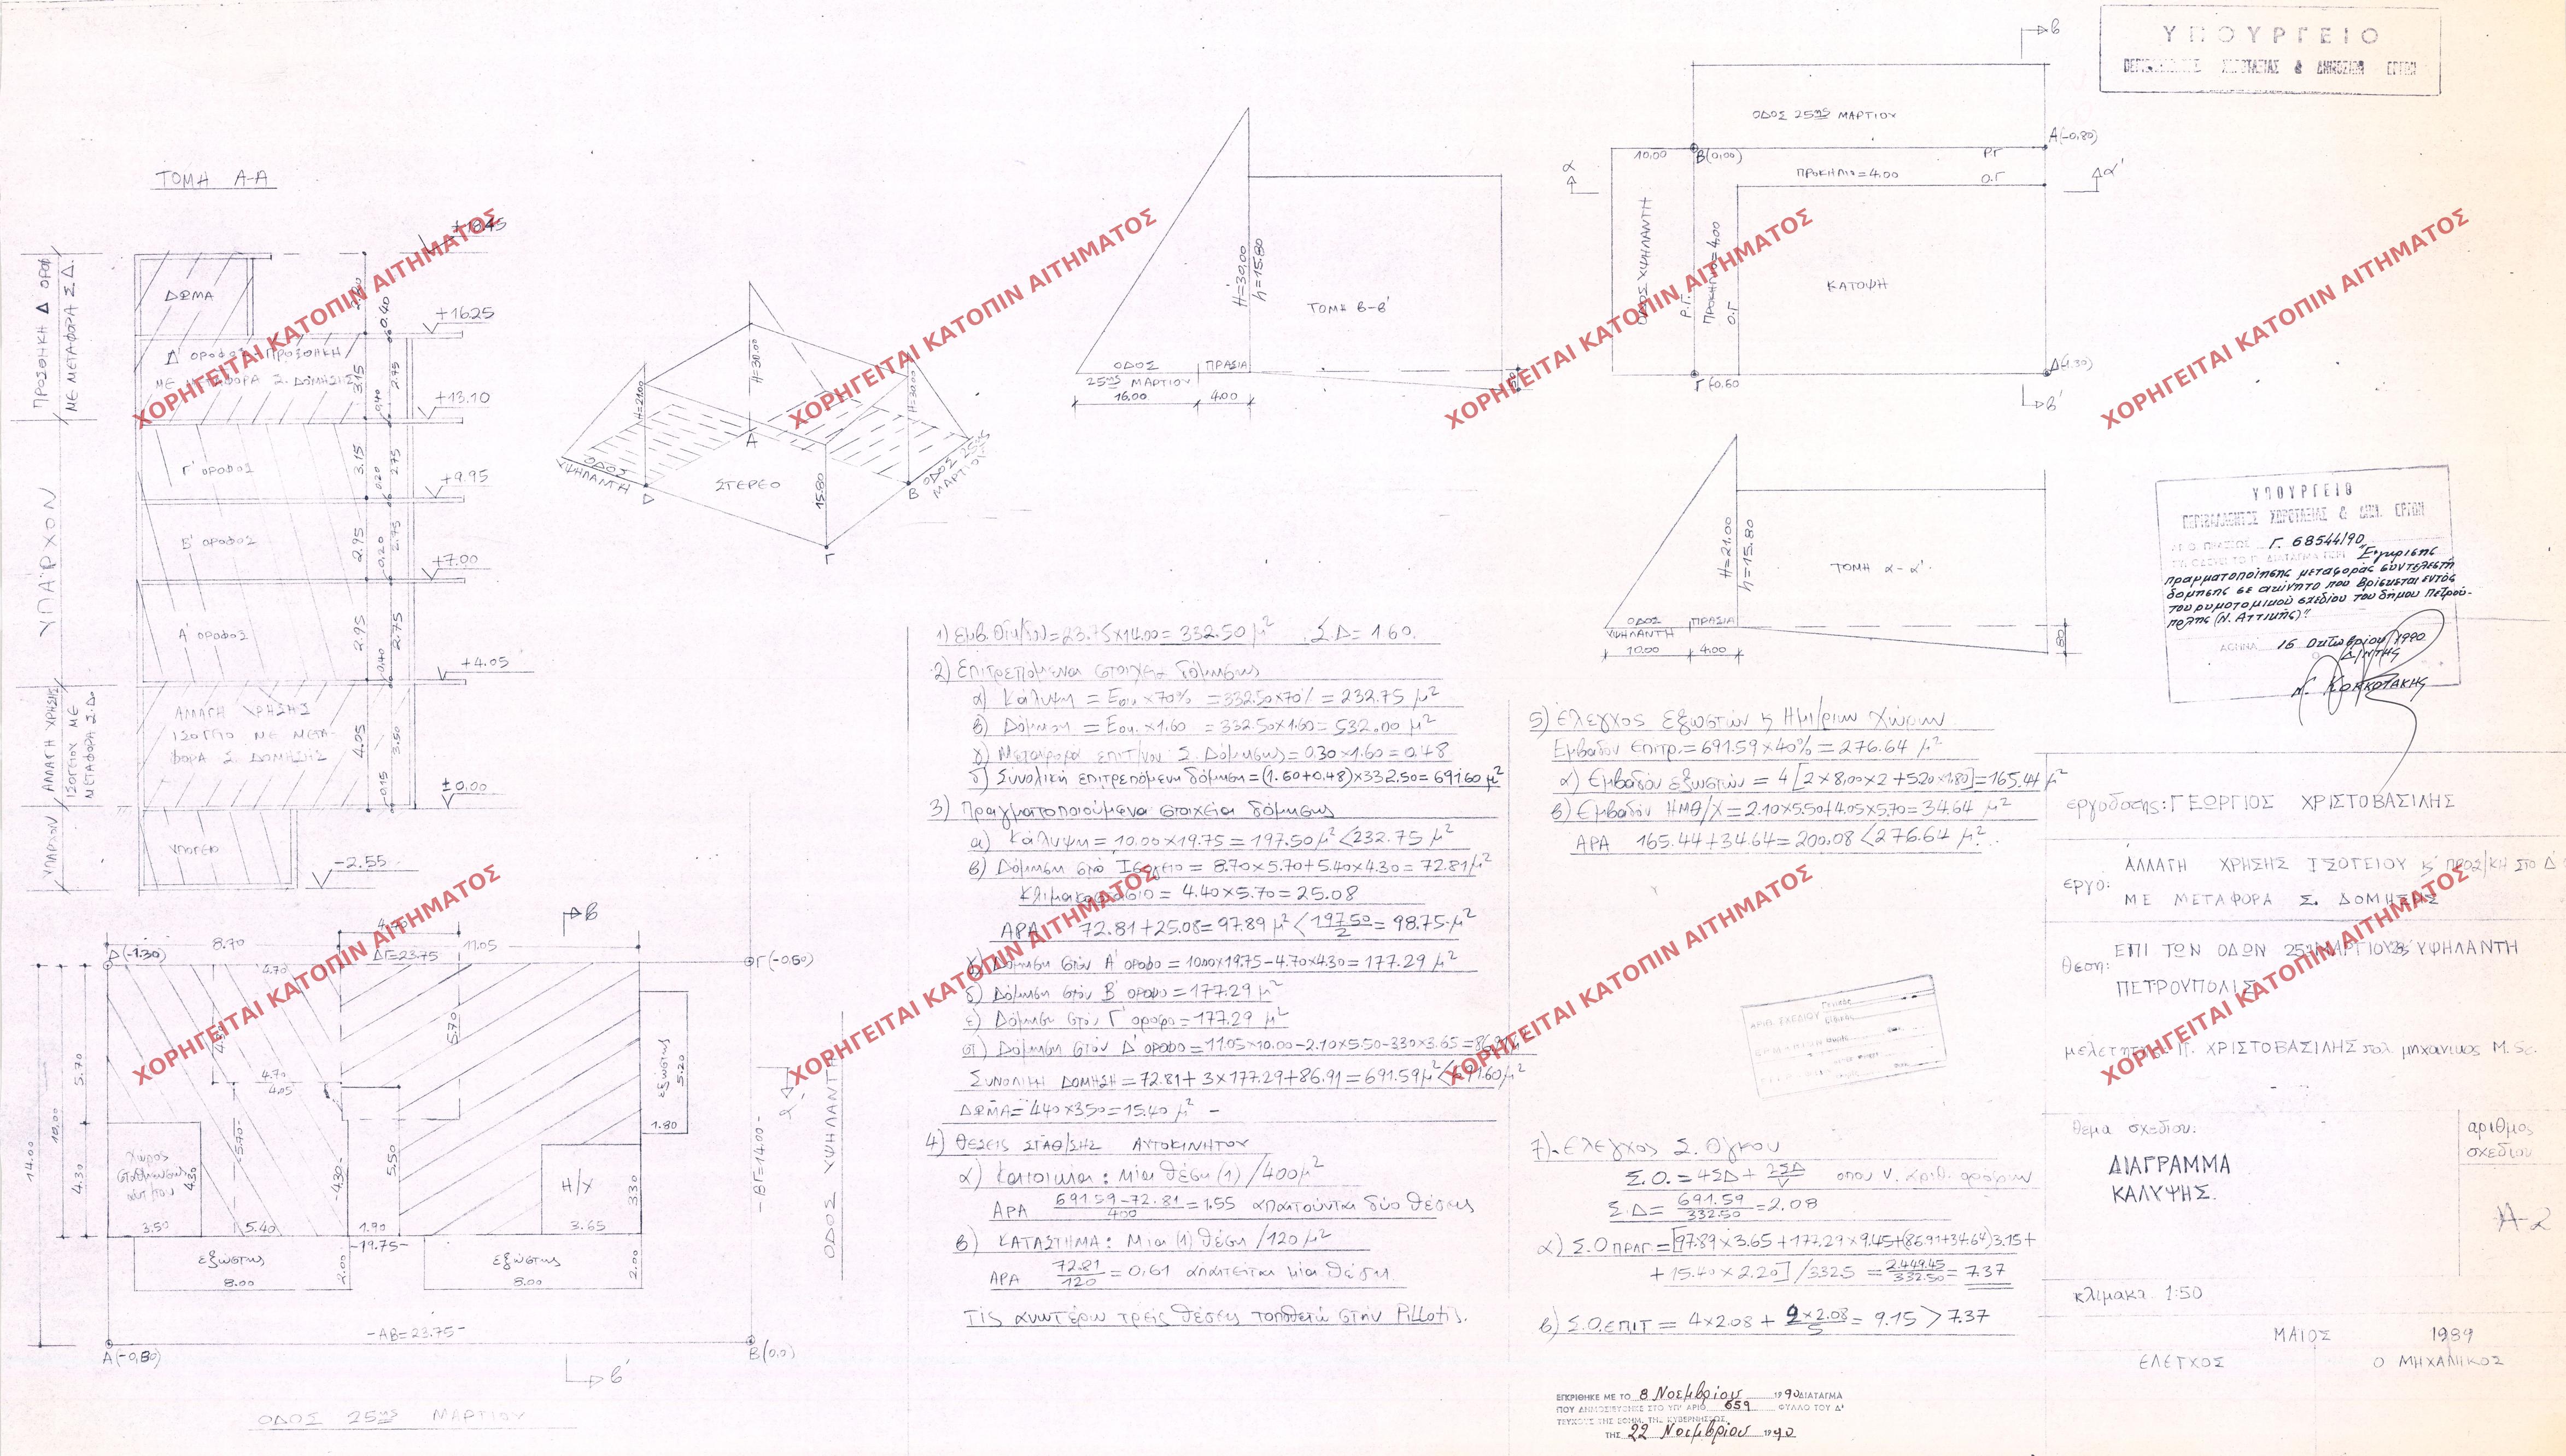 ΤΟΜΗ Α-Α
ΠΡΟΣΘΗΚΗ Δ ΟΡΟΦ
ΜΕ ΜΕΤΑΦΟΡΑ Σ.Δ.
ΥΠΑΡΧΟΝ
ΑΛΛΑΓΗ ΧΡΗΣΗΣ
ΙΣΟΓΕΙΟΥ ΜΕ
ΜΕΤΑΦΟΡΑ Σ.Δο
ΥΠΑΡΧΟΝ
ΔΩΜΑ
0.40
+16.25
Δ' ΟΡΟΦΟΣ-ΠΡΟΣΘΗΚΗ
ΜΕ ΜΕΤΑΦΟΡΑ Σ. ΔΟΜΗΣΗΣ
3.15
2.75
0.40
+13.10
Γ' ΟΡΟΦΟΣ
3.15
0.20
2.75
+9.95
Β' ΟΡΟΦΟΣ
2.95
0.20
2.75
+7.00
Α' ΟΡΟΦΟΣ
2.95
0.40
2.75
+4.05
ΑΛΛΑΓΗ ΧΡΗΣΗΣ
ΙΣΟΓΕΙΟ ΜΕ ΜΕΤΑ-
ΦΟΡΑ Σ. ΔΟΜΗΣΗΣ
4.05
3.50
0.15
±0.00
ΥΠΟΓΕΙΟ
-2.55
β
Δ(-1.30)
8.70
4.70
ΔΓ=23.75
11.05
Γ(-0.60)
4.70
5.70
4.70
4.05
5.70
10.00
14.00
4.30
χώρος
σταθμευσης
αυτ/του
4.30
3.50
5.70
5.40
4.30
1.90
5.50
Η/Χ
3.30
3.65
εξώστης
5.20
1.80
-19.75-
εξώστης
8.00
2.00
εξώστης
8.00
2.00
-ΒΓ=14.00-
ΟΔΟΣ ΥΨΗΛΑΝΤΗ
α
-ΑΒ=23.75-
Α(-0,80)
Β(0,0)
β'
ΟΔΟΣ 25ης ΜΑΡΤΙΟΥ
Η=21.00
Η=30.00
Η=30.00
15.80
ΟΔΟΣ
ΥΨΗΛΑΝΤΗ
ΣΤΕΡΕΟ
Α
Β
Γ
Δ
ΟΔΟΣ 25ης
ΜΑΡΤΙΟΥ
Η=30,00
h=15.80
ΤΟΜΗ Β-Β'
ΟΔΟΣ
25ης ΜΑΡΤΙΟΥ
ΠΡΑΣΙΑ
16.00
4.00
β
ΟΔΟΣ 25ης ΜΑΡΤΙΟΥ
Α(-0,80)
10,00
Β(0,00)
Ρ.Γ
ΠΡΟΚΗΠΙΟ=4.00
Ο.Γ
α
α'
ΟΔΟΣ ΥΨΗΛΑΝΤΗ
Ρ.Γ.
ΠΡΟΚΗΠΙΟ=4.00
Ο.Γ
ΚΑΤΟΨΗ
Γ(-0.60
Δ(-1.30)
β'
Η=21.00
h=15.80
ΤΟΜΗ α-α'
ΟΔΟΣ
ΥΨΗΛΑΝΤΗ
ΠΡΑΣΙΑ
10.00
4.00
80
1) Εμβ. Οικ/δου=23.75x14.00=332.50 μ² Σ.Δ=1.60.
2) Επιτρεπόμενα στοιχεία δόμησης
α) Κάλυψη = Εοικ x70% =332.50x70% = 232.75 μ²
β) Δόμηση = Εοικ. x1.60 =332.50x1.60= 532.00 μ²
γ) Μεταφορά επιτ/νου Σ. Δόμησης=0.30x1.60=0.48
δ) Συνολική επιτρεπόμενη δόμηση=(1.60+0.48)x332.50=691.60 μ²
3) Πραγματοποιούμενα στοιχεία δόμησης
α) Κάλυψη = 10.00x19.75=197.50 μ²<232.75 μ²
β) Δόμηση στο Ισόγειο = 8.70x5.70+5.40x4.30=72.81μ²
Κλιμακοστάσιο = 4.40x5.70=25.08
ΑΡΑ 72.81+25.08=97.89 μ²<197.50/2=98.75 μ²
γ) Δόμηση στον Α' οροφο=10.00x19.75-4.70x4.30=177.29 μ²
δ) Δόμηση στον Β' οροφο=177.29 μ²
ε) Δόμηση στον Γ' οροφο=177.29 μ²
στ) Δόμηση στον Δ' οροφο=11.05x10.00-2.10x5.50-3.30x3.65=86.91μ²
ΣΥΝΟΛΙΚΗ ΔΟΜΗΣΗ=72.81+3x177.29+86.91=691.59μ²<691.60μ²
ΔΩΜΑ=4.40x3.50=15.40 μ² -
4) ΘΕΣΕΙΣ ΣΤΑΘ/ΣΗΣ ΑΥΤΟΚΙΝΗΤΟΥ
α) Κατοικία: Μία θέση (1) /400μ²
ΑΡΑ 691.59-72.81/400=1.55 απαιτούνται δύο θέσεις
β) ΚΑΤΑΣΤΗΜΑ: Μια (1) θέση /120 μ²
ΑΡΑ 72.81/120=0,61 απαιτείται μία θέση.
Τις ανωτέρω τρείς θέσεις τοποθετώ στην Pillotis.
5) Έλεγχος Εξωστών ϗ Ημι/ριων Χώρων
Εμβαδόν Επιτρ.=691.59x40%=276.64 μ²
α) Εμβαδόν εξωστών = 4[2x8,00x2+5.20x1.80]=165.44 μ²
β) Εμβαδόν ΗΜΘ/Χ=2.10x5.50+4.05x5.70=34.64 μ²
ΑΡΑ 165.44+34.64=200.08<276.64 μ².
7). Έλεγχος Σ. Ογκου
Σ.Ο.=4ΣΔ+2ΣΔ/ν οπου ν. αριθ. οροφων
Σ.Δ=691.59/332.50=2.08
α) Σ.Ο ΠΡΑΓ.=[97.89x3.65+177.29x9.45+(86.91+34.64)3.15+
+15.40x2.20]/332.5=2.449.45/332.50=7.37
β) Σ.Ο.ΕΠΙΤ = 4x2.08+2x2.08/5=9.15>7.37
ΕΓΚΡΙΘΗΚΕ ΜΕ ΤΟ 8 Νοεμβρίου 1990 ΔΙΑΤΑΓΜΑ
ΠΟΥ ΔΗΜΟΣΙΕΥΘΗΚΕ ΣΤΟ ΥΠ' ΑΡΙΘ 659 ΦΥΛΛΟ ΤΟΥ Δ'
ΤΕΥΧΟΥΣ ΤΗΣ ΕΦΗΜ. ΤΗΣ ΚΥΒΕΡΝΗΣΕΩΣ
ΤΗΣ 22 Νοεμβρίου 1990
ΑΡΙΘ. ΣΧΕΔΙΟΥ
ΥΠΟΥΡΓΕΙΟ
ΠΕΡΙΒΑΛΛΟΝΤΟΣ ΧΩΡΟΤΑΞΙΑΣ & ΔΗΜΟΣΙΩΝ ΕΡΓΩΝ
ΥΠΟΥΡΓΕΙΟ
ΠΕΡΙΒΑΛΛΟΝΤΟΣ ΧΩΡΟΤΑΞΙΑΣ & ΔΗΜ. ΕΡΓΩΝ
Γ. 68544/90
"Εγκρισης
πραγματοποίησης μεταφοράς συντελεστή
δομησης σε ακίνητο που βρίσκεται εντός
του ρυμοτομικού σχεδίου του δήμου Πετρού-
πολης (Ν. Αττικής)"
ΑΘΗΝΑ 16 Οκτωβρίου 1990
Ο Δ/ΝΤΗΣ
εργοδοτης: ΓΕΩΡΓΙΟΣ ΧΡΙΣΤΟΒΑΣΙΛΗΣ
εργο: ΑΛΛΑΓΗ ΧΡΗΣΗΣ ΙΣΟΓΕΙΟΥ ϗ ΠΡΟΣ/ΚΗ ΣΤΟ Δ
ΜΕ ΜΕΤΑΦΟΡΑ Σ. ΔΟΜΗΣΗΣ
θεση: ΕΠΙ ΤΩΝ ΟΔΩΝ 25ης ΜΑΡΤΙΟΥ ΥΨΗΛΑΝΤΗ
ΠΕΤΡΟΥΠΟΛΙΣ
μελετητης: Π. ΧΡΙΣΤΟΒΑΣΙΛΗΣ πολ. μηχανικος M.Sc.
θεμα σχεδιου:
ΔΙΑΓΡΑΜΜΑ
ΚΑΛΥΨΗΣ.
αριθμος
σχεδιου
Α-2
κλιμακα 1:50
ΜΑΙΟΣ 1989
ΕΛΕΓΧΟΣ Ο ΜΗΧΑΝΙΚΟΣ
ΧΟΡΗΓΕΙΤΑΙ ΚΑΤΟΠΙΝ ΑΙΤΗΜΑΤΟΣ
ΧΟΡΗΓΕΙΤΑΙ ΚΑΤΟΠΙΝ ΑΙΤΗΜΑΤΟΣ
ΧΟΡΗΓΕΙΤΑΙ ΚΑΤΟΠΙΝ ΑΙΤΗΜΑΤΟΣ
ΧΟΡΗΓΕΙΤΑΙ ΚΑΤΟΠΙΝ ΑΙΤΗΜΑΤΟΣ
ΧΟΡΗΓΕΙΤΑΙ ΚΑΤΟΠΙΝ ΑΙΤΗΜΑΤΟΣ
ΧΟΡΗΓΕΙΤΑΙ ΚΑΤΟΠΙΝ ΑΙΤΗΜΑΤΟΣ
ΧΟΡΗΓΕΙΤΑΙ ΚΑΤΟΠΙΝ ΑΙΤΗΜΑΤΟΣ
ΧΟΡΗΓΕΙΤΑΙ ΚΑΤΟΠΙΝ ΑΙΤΗΜΑΤΟΣ